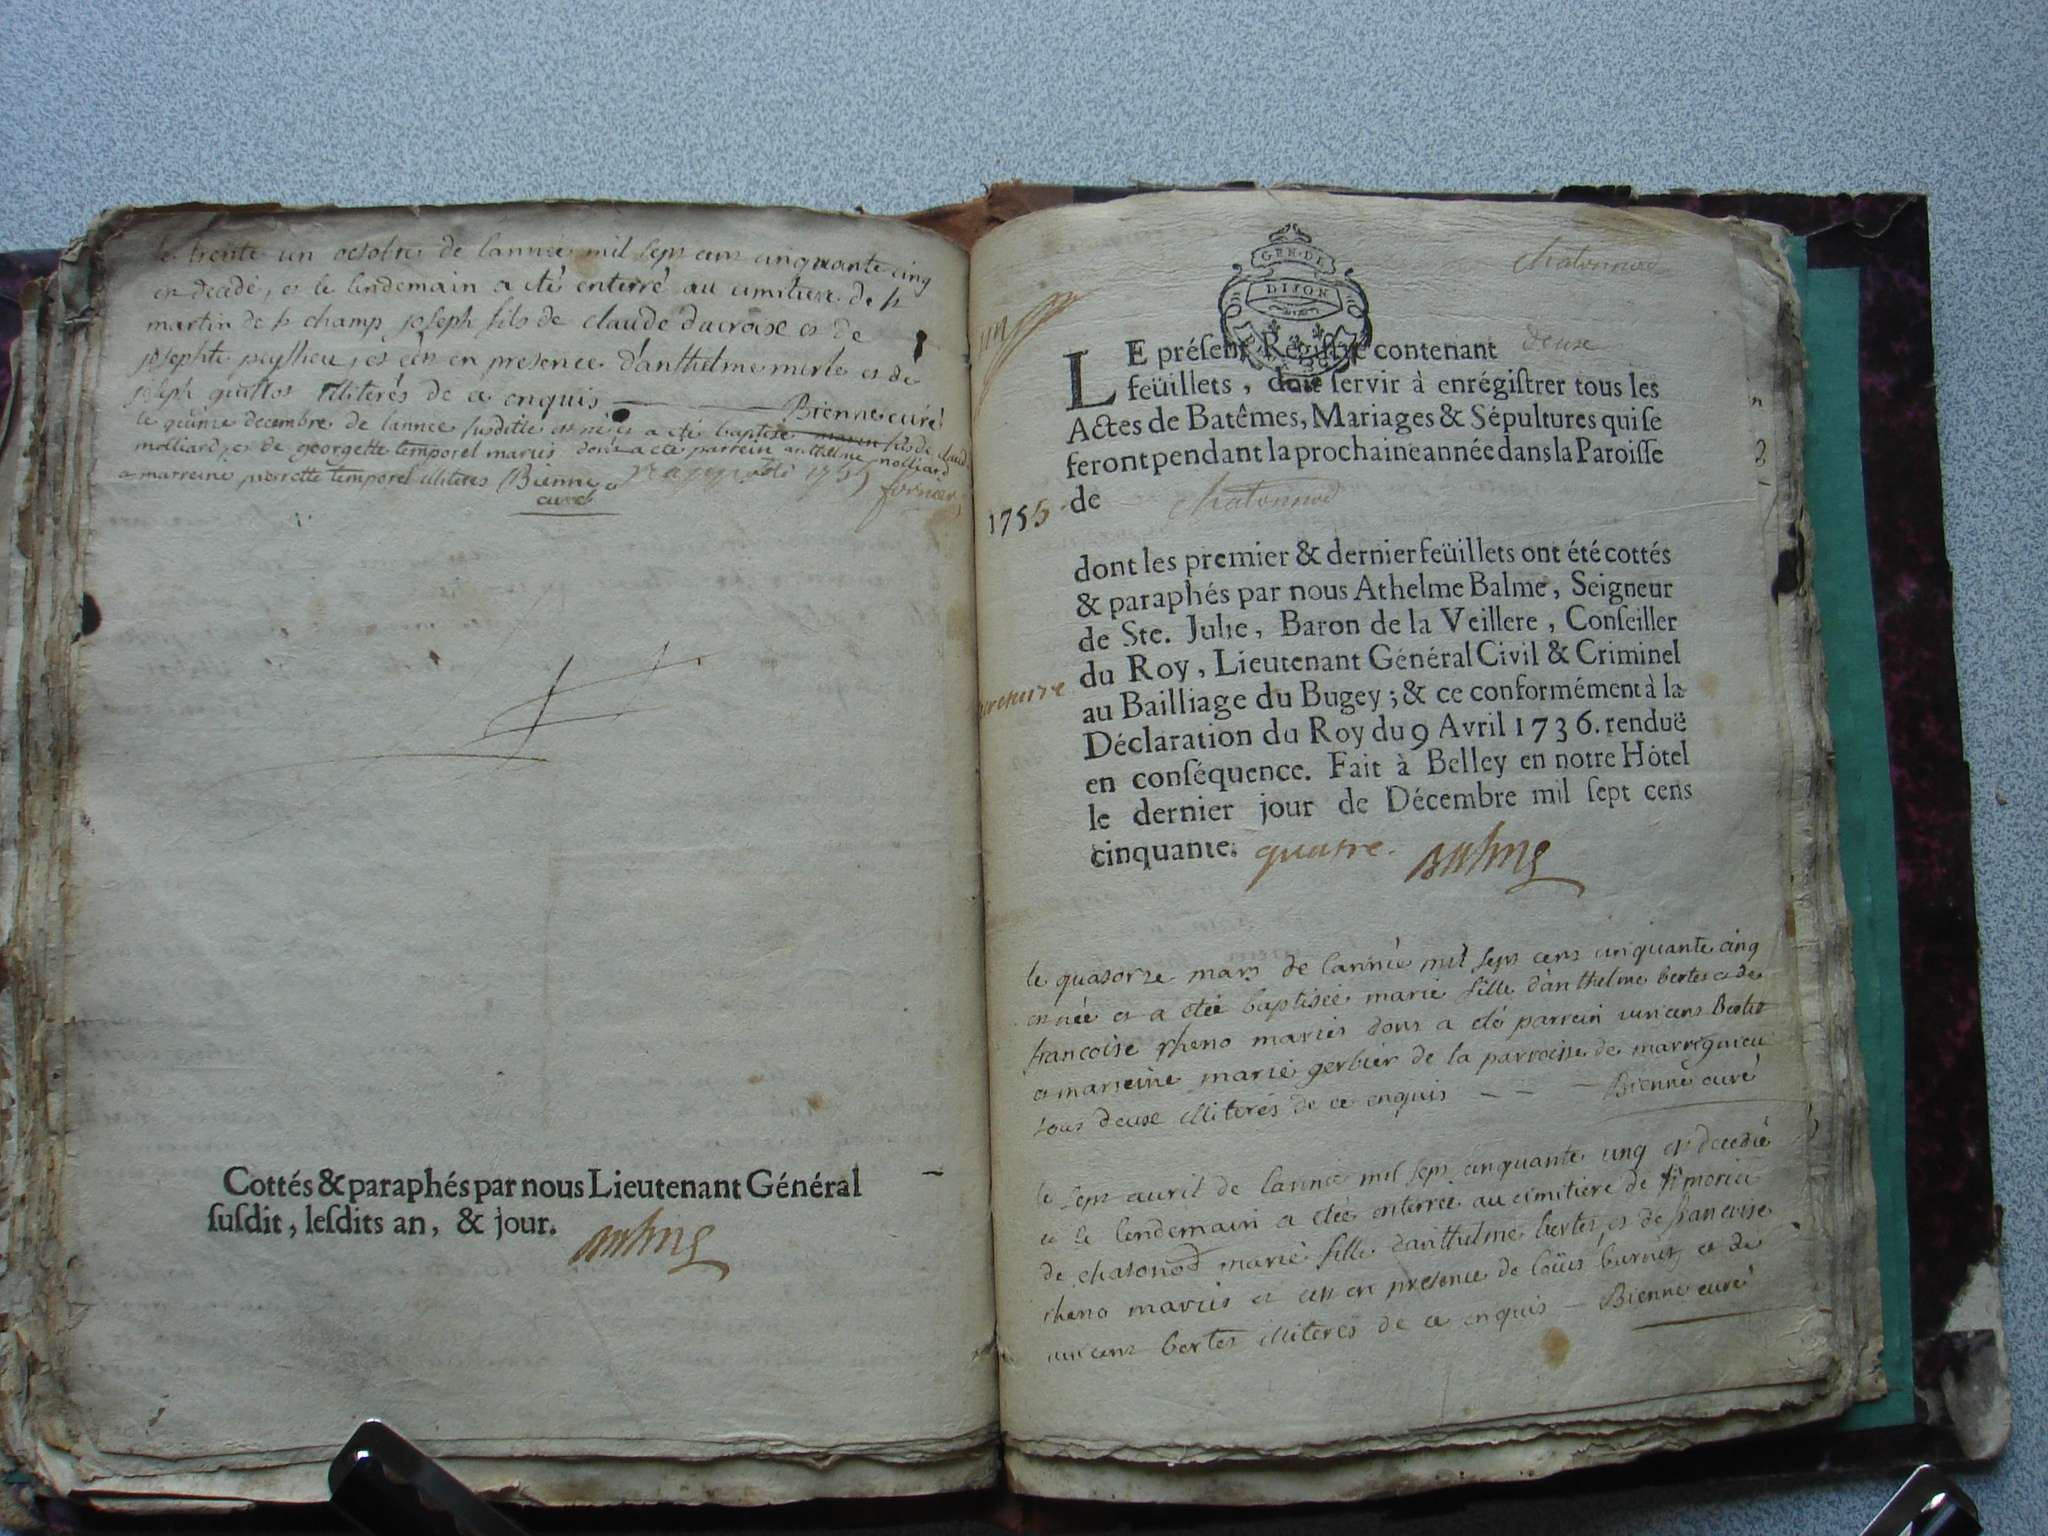 le trente un octobre de lannée mil sept cens cinquante cinq
est decedé, et le lendemain a eté enterré au cimitiere de st
martin de st champ joseph fils de claude ducroise et de
josephte peysslieu, et cest en presence d'anthelme merle et de
joseph guillot illiterés de ce enquis Bienne curé
le quinze decembre de lannée susditte est né et a eté baptisé fils de claude
molliard, et de georgette temporel mariés dont a eté parrein anthelme molliard
et marreine pierrette temporel illiteres Bienne
curé
1755
Cottés & paraphés par nous Lieutenant Général
ſuſdit, leſdits an, & jour.
chatonnod
GEN. DE
DIJON
un
LE préſent Régiſtre contenant deux
feüillets, doit ſervir à enrégiſtrer tous les
Actes de Batêmes, Mariages & Sépultures qui ſe
feront pendant la prochaine année dans la Paroiſſe
de chatonnod
1755
dont les premier & dernier feüillets ont été cottés
& paraphés par nous Athelme Balme, Seigneur
de Ste. Julie, Baron de la Veillere, Conſeiller
du Roy, Lieutenant Général Civil & Criminel
au Bailliage du Bugey; & ce conformément à la
Déclaration du Roy du 9 Avril 1736. renduë
en conſéquence. Fait à Belley en notre Hôtel
le dernier jour de Décembre mil ſept cens
cinquante. quatre. Balme
le quatorze mars de lannée mil sept cens cinquante cinq
est née et a etée baptisée marie fille d'anthelme bertet et de
francoise rheno mariés dont a eté parrein vincent Bertet
et marreine marie gerbier de la parroisse de marrignieu
tous deux illiterés de ce enquis Bienne curé
le sept avril de lannée mil sept cinquante cinq est decedée
et le lendemain a etée enterrée au cimitiere de
de chatonod marie fille d'anthelme bertet, et de francoise
rheno mariés et cest en presence de loüis burnet et de
vincent bertet illiterés de ce enquis Bienne curé